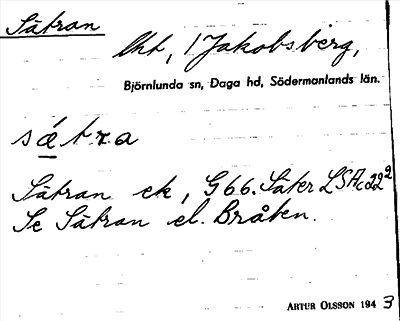 Sätran
lht, / Jakobsberg,
Björnlunda sn, Daga hd, Södermanlands län.
sǽtra
Sätran ek, G66. Säter LSAc22²
Se Sätran el. Bråten.
ARTUR OLSSON 1943